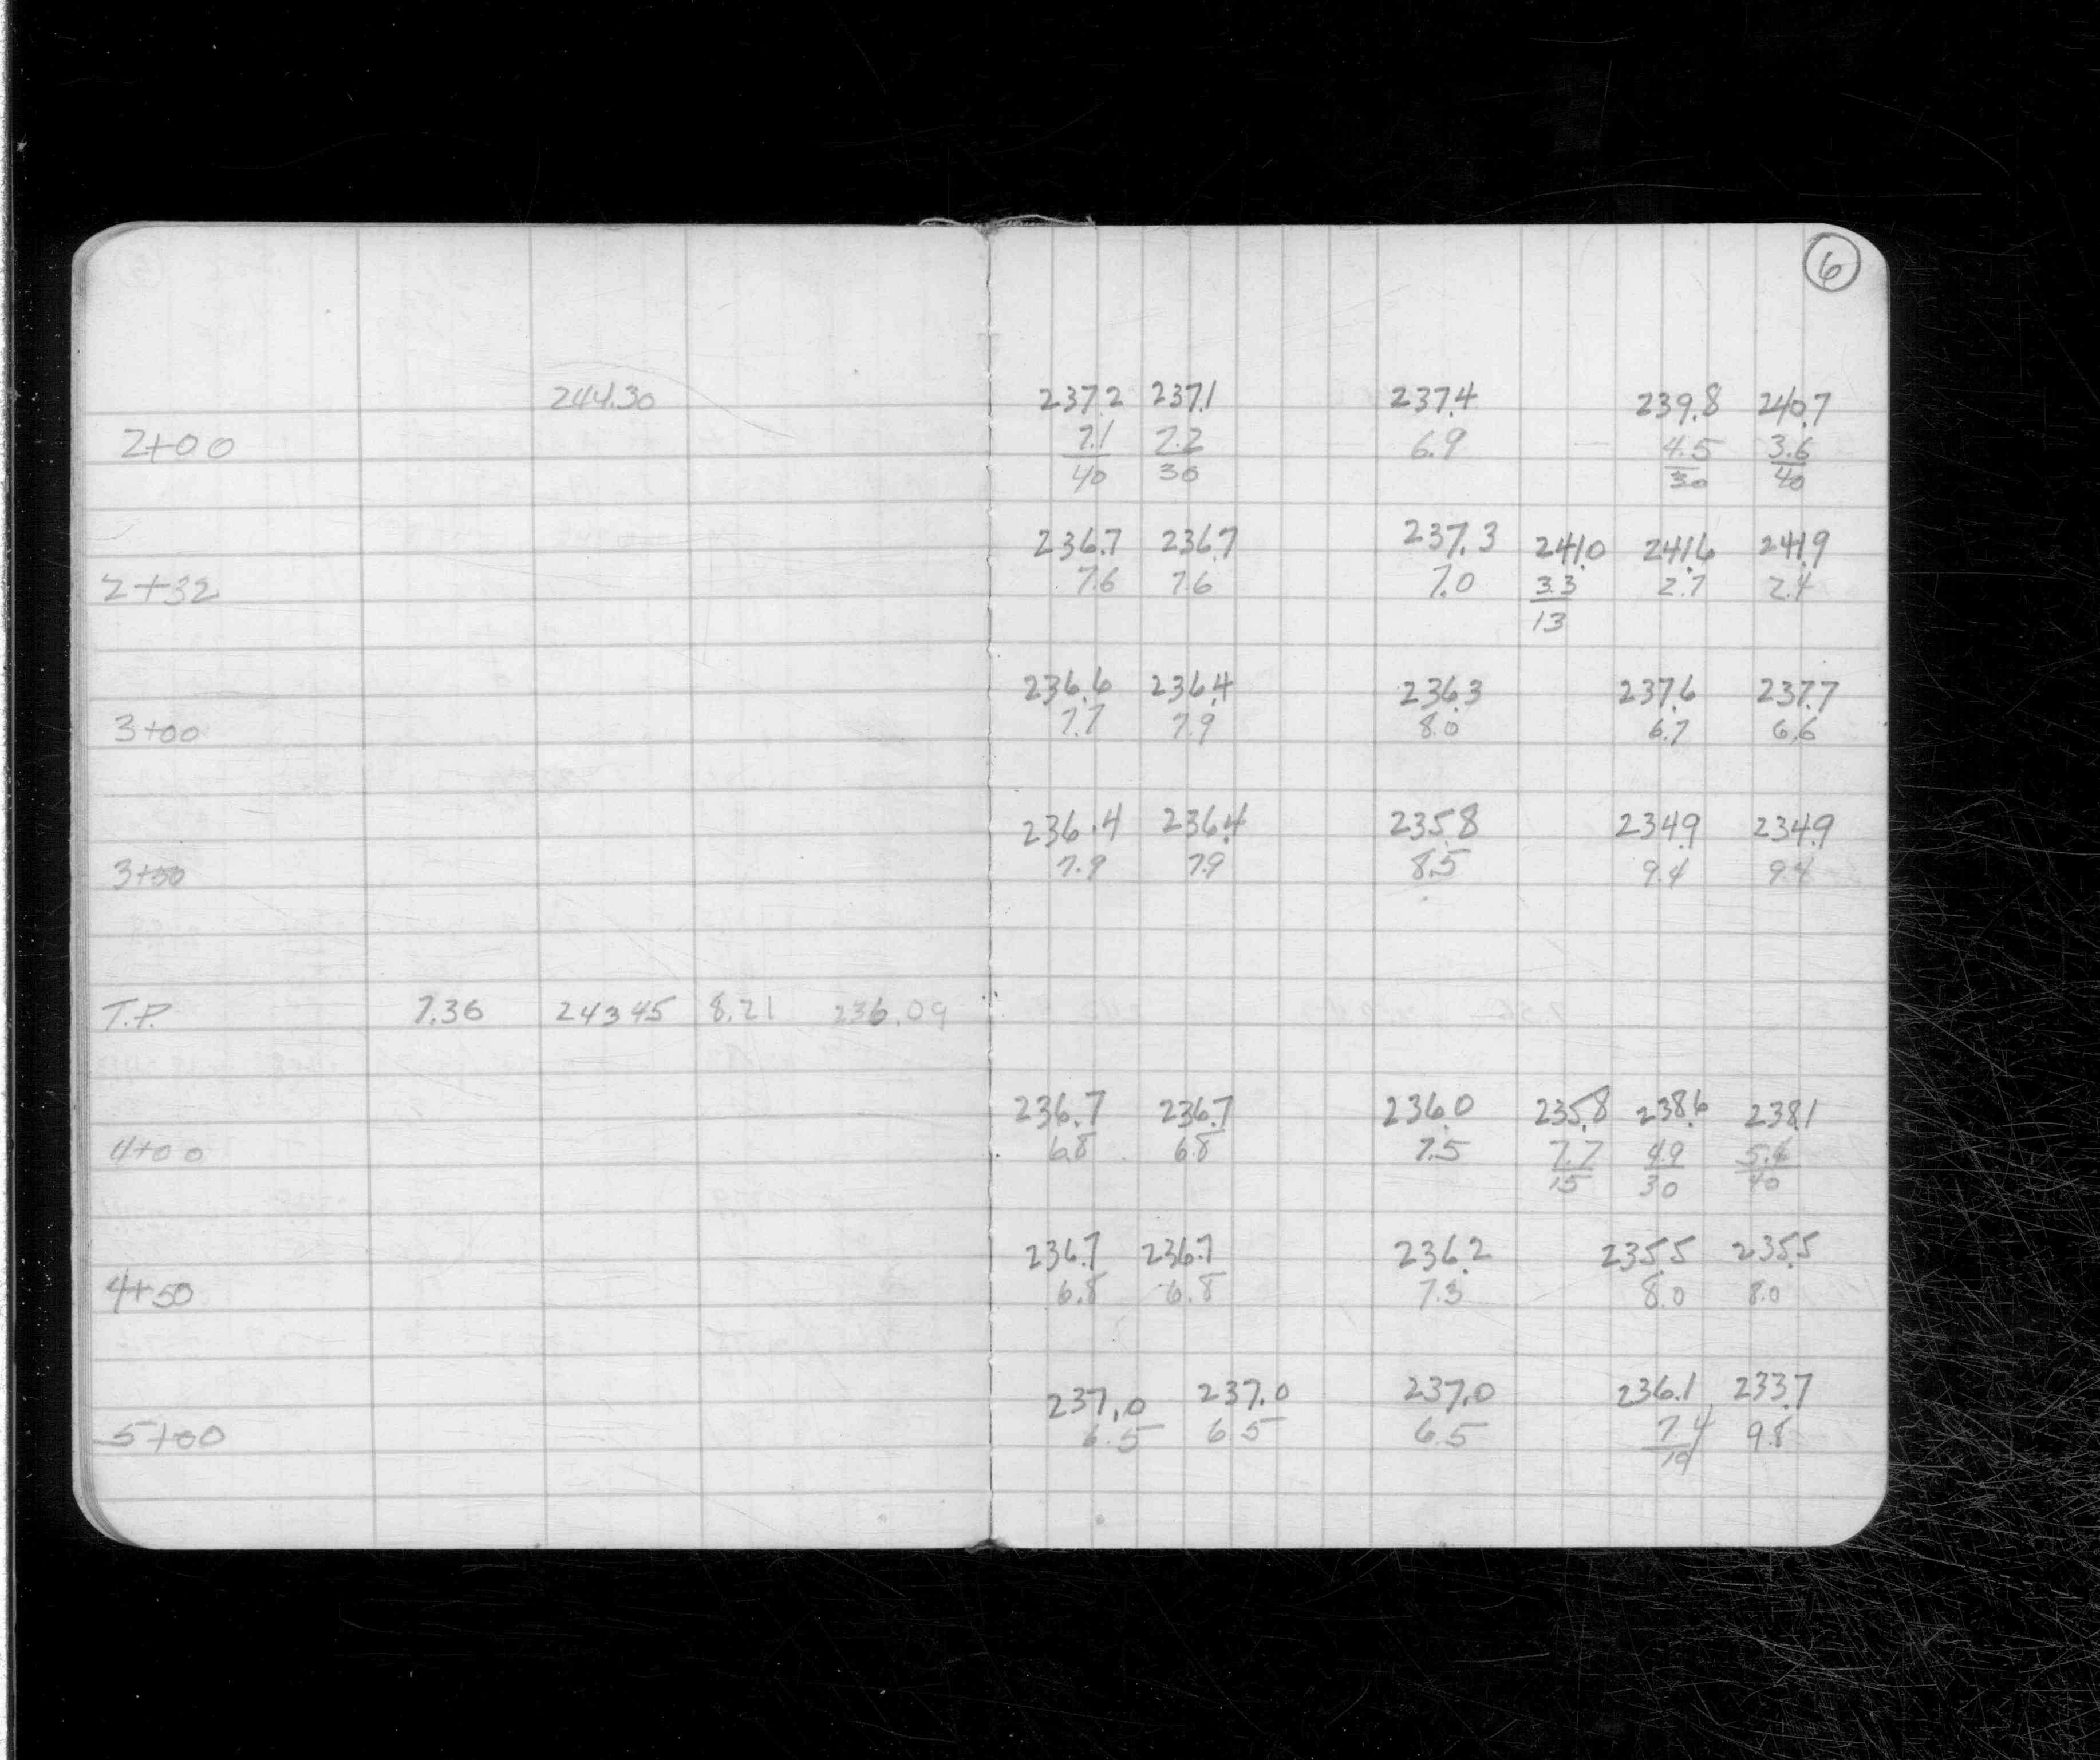 6
244.30 237.2 237.1 237.4 239.8 240.7
2+00 7.1 7.2 6.9 4.5 3.6
40 30 30 40
236.7 236.7 237.3 241.0 241.6 241.9
2+32 7.6 7.6 7.0 3.3 2.7 2.4
13
236.6 236.4 236.3 237.6 237.7
3+00 7.7 7.9 8.0 6.7 6.6
236.4 236.4 235.8 234.9 234.9
3+50 7.9 7.9 8.5 9.4 9.4
T.P. 7.36 243.45 8.21 236.09
236.7 236.7 236.0 235.8 238.6 238.1
4+00 6.8 6.8 7.5 7.7 4.9 5.4
15 30 40
236.7 236.7 236.2 235.5 235.5
4+50 6.8 6.8 7.3 8.0 8.0
237.0 237.0 237.0 236.1 233.7
5+00 6.5 6.5 6.5 7.4 9.8
10